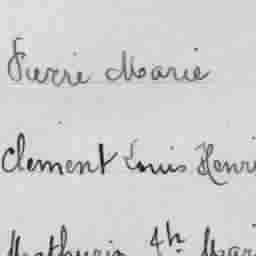 Pierre Marie
Clement Louis Henri
Mathurin 4h Mari